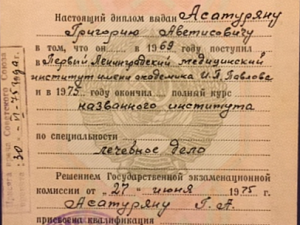 Настоящий диплом выдан Асатуряну
Григорию Аветисовичу
в том, что он в 1969 году поступил
в Первый Ленинградский медицинский
институт имени академика И.П. Павлова
и в 1975 году окончил полный курс
названного института
по специальности
лечебное дело
Решением Государственной экзаменационной
комиссии от "27" июня 1975 г.
Асатуряну Г. А.
присвоена квалификация